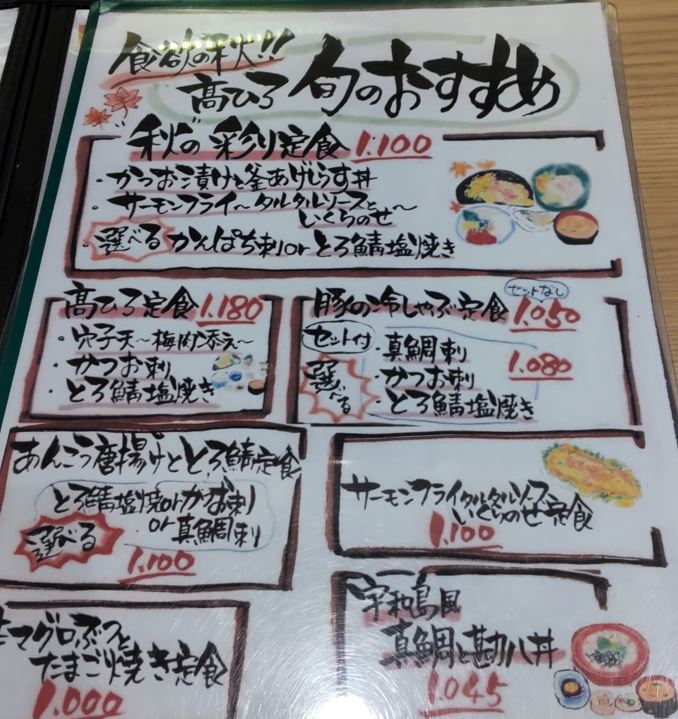 食欲の秋!!
高ひろ 旬のおすすめ
秋の彩り定食 1.100
・かつお漬けと釜あげしらす丼
・サーモンフライ〜タルタルソースと
いくらのせ〜
・選べる かんぱち刺orとろ鯖塩焼き
高ひろ定食 1.180
・穴子天〜梅肉添え〜
・かつお刺
・とろ鯖塩焼き
豚の冷しゃぶ定食 セットなし 1.050
セット付 1.080
選べる
・真鯛刺
・かつお刺
・とろ鯖塩焼き
あんこう唐揚げととろ鯖定食
とろ鯖塩焼orかつお刺
or真鯛刺
選べる
1.100
サーモンフライタルタルソース
いくらのせ定食
1.100
マグロぶつと
たまご焼き定食
1.000
宇和島風
真鯛と勘八丼
1.045